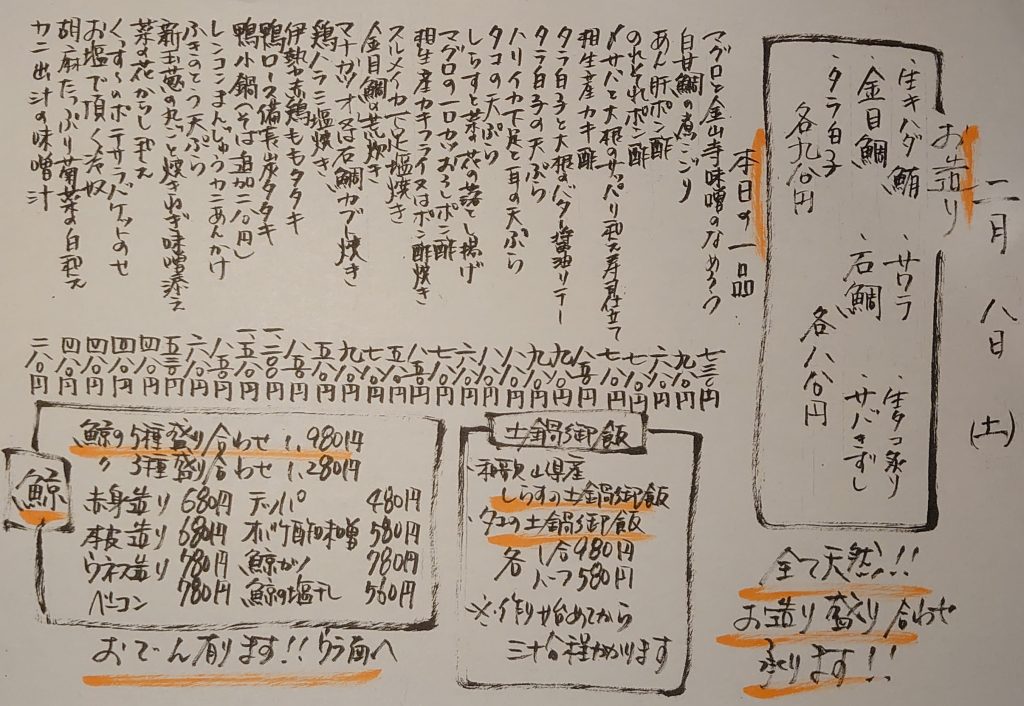 二月 八日 (土)
お造り
・生キハダ鮪 ・サワラ ・生タコ炙り
・金目鯛 ・石鯛 ・サバきずし
・タラ白子 各八八〇円
各九八〇円
全て天然!!
お造り盛り合わせ
承ります!!
本日の一品
マグロと金山寺味噌のなめろう 七三〇円
白甘鯛の煮こごり 九八〇円
あん肝ポン酢 六八〇円
のれそれポン酢 七八〇円
〆サバと大根のサッパリ和え寿司仕立て 七八〇円
相生産カキ酢 八五〇円
タラ白子と大根のバター醤油ソテー 九八〇円
タラ白子の天ぷら 九八〇円
ハリイカ下足と耳の天ぷら 八八〇円
タコの天ぷら 八八〇円
しらすと菜の花の落とし揚げ 六八〇円
マグロの一口カツおろしポン酢 七八〇円
相生産カキフライ又はポン酢焼き 八五〇円
スルメイカ下足塩焼き 五八〇円
金目鯛の荒炊き 七八〇円
マナガツオ又は石鯛カブト焼き 九八〇円
鶏ハラミ塩焼き 五八〇円
伊勢赤鶏ももタタキ 八五〇円
鴨ロース備長炭タタキ 一二〇〇円
鴨小鍋(そば追加二八〇円) 一五八〇円
レンコンまんじゅうカニあんかけ 八五〇円
ふきのとう天ぷら 六八〇円
新玉葱の丸ごと焼きねぎ味噌添え 五三〇円
菜の花からし和え 四八〇円
くんすべのポテサラバケットのせ 四八〇円
お塩で頂く冷奴 四八〇円
胡麻たっぷり菊菜の白和え 四八〇円
カニ出汁の味噌汁 二八〇円
土鍋御飯
・和歌山県産
しらすの土鍋御飯
・タコの土鍋御飯
各 1合 980円
ハーフ 580円
※作り始めてから
三十分程かかります
鯨
鯨の5種盛り合わせ 1,980円
〃 3種盛り合わせ 1,280円
赤身造り 680円 テッパ 480円
本皮造り 680円 オバケ酢味噌 580円
ウネス造り 780円 鯨カツ 780円
ベーコン 780円 鯨の塩干し 560円
おでん有ります!!ウラ面へ